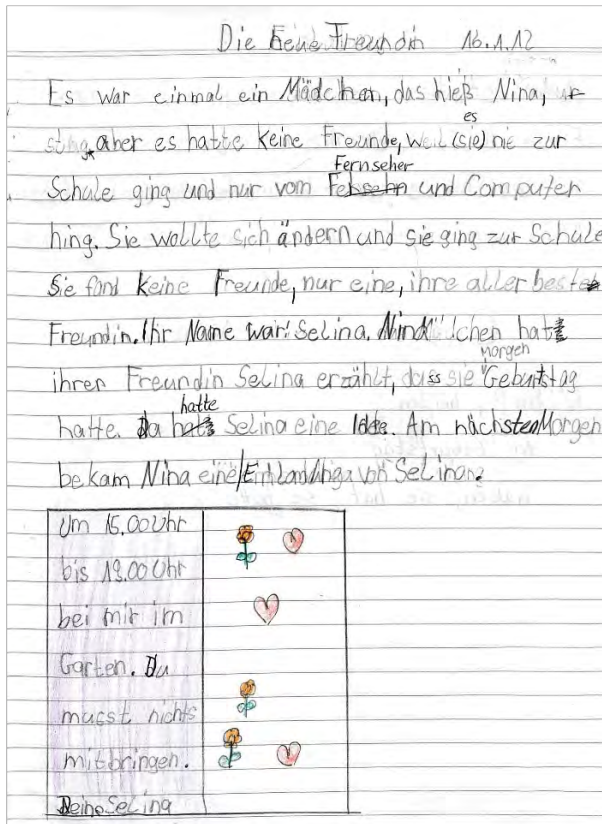 Die neue Freundin 16.1.12
Es war einmal ein Mädchen, das hieß Nina,
aber es hatte keine Freunde, weil (sie) es nie zur
Schule ging und nur vom Fernseher und Computer
hing. Sie wollte sich ändern und sie ging zur Schule
Sie fand keine Freunde, nur eine, ihre aller beste
Freundin. Ihr Name war: Selina. hat
ihrer Freundin Selina erzählt, dass sie morgen Geburtstag
hatte. Da hatte Selina eine Idee. Am nächsten Morgen
bekam Nina eine von Selina:
Um 15.00 Uhr
bis 19.00 Uhr
bei mir im
Garten. Du
musst nichts
mitbringen.
Deine Selina